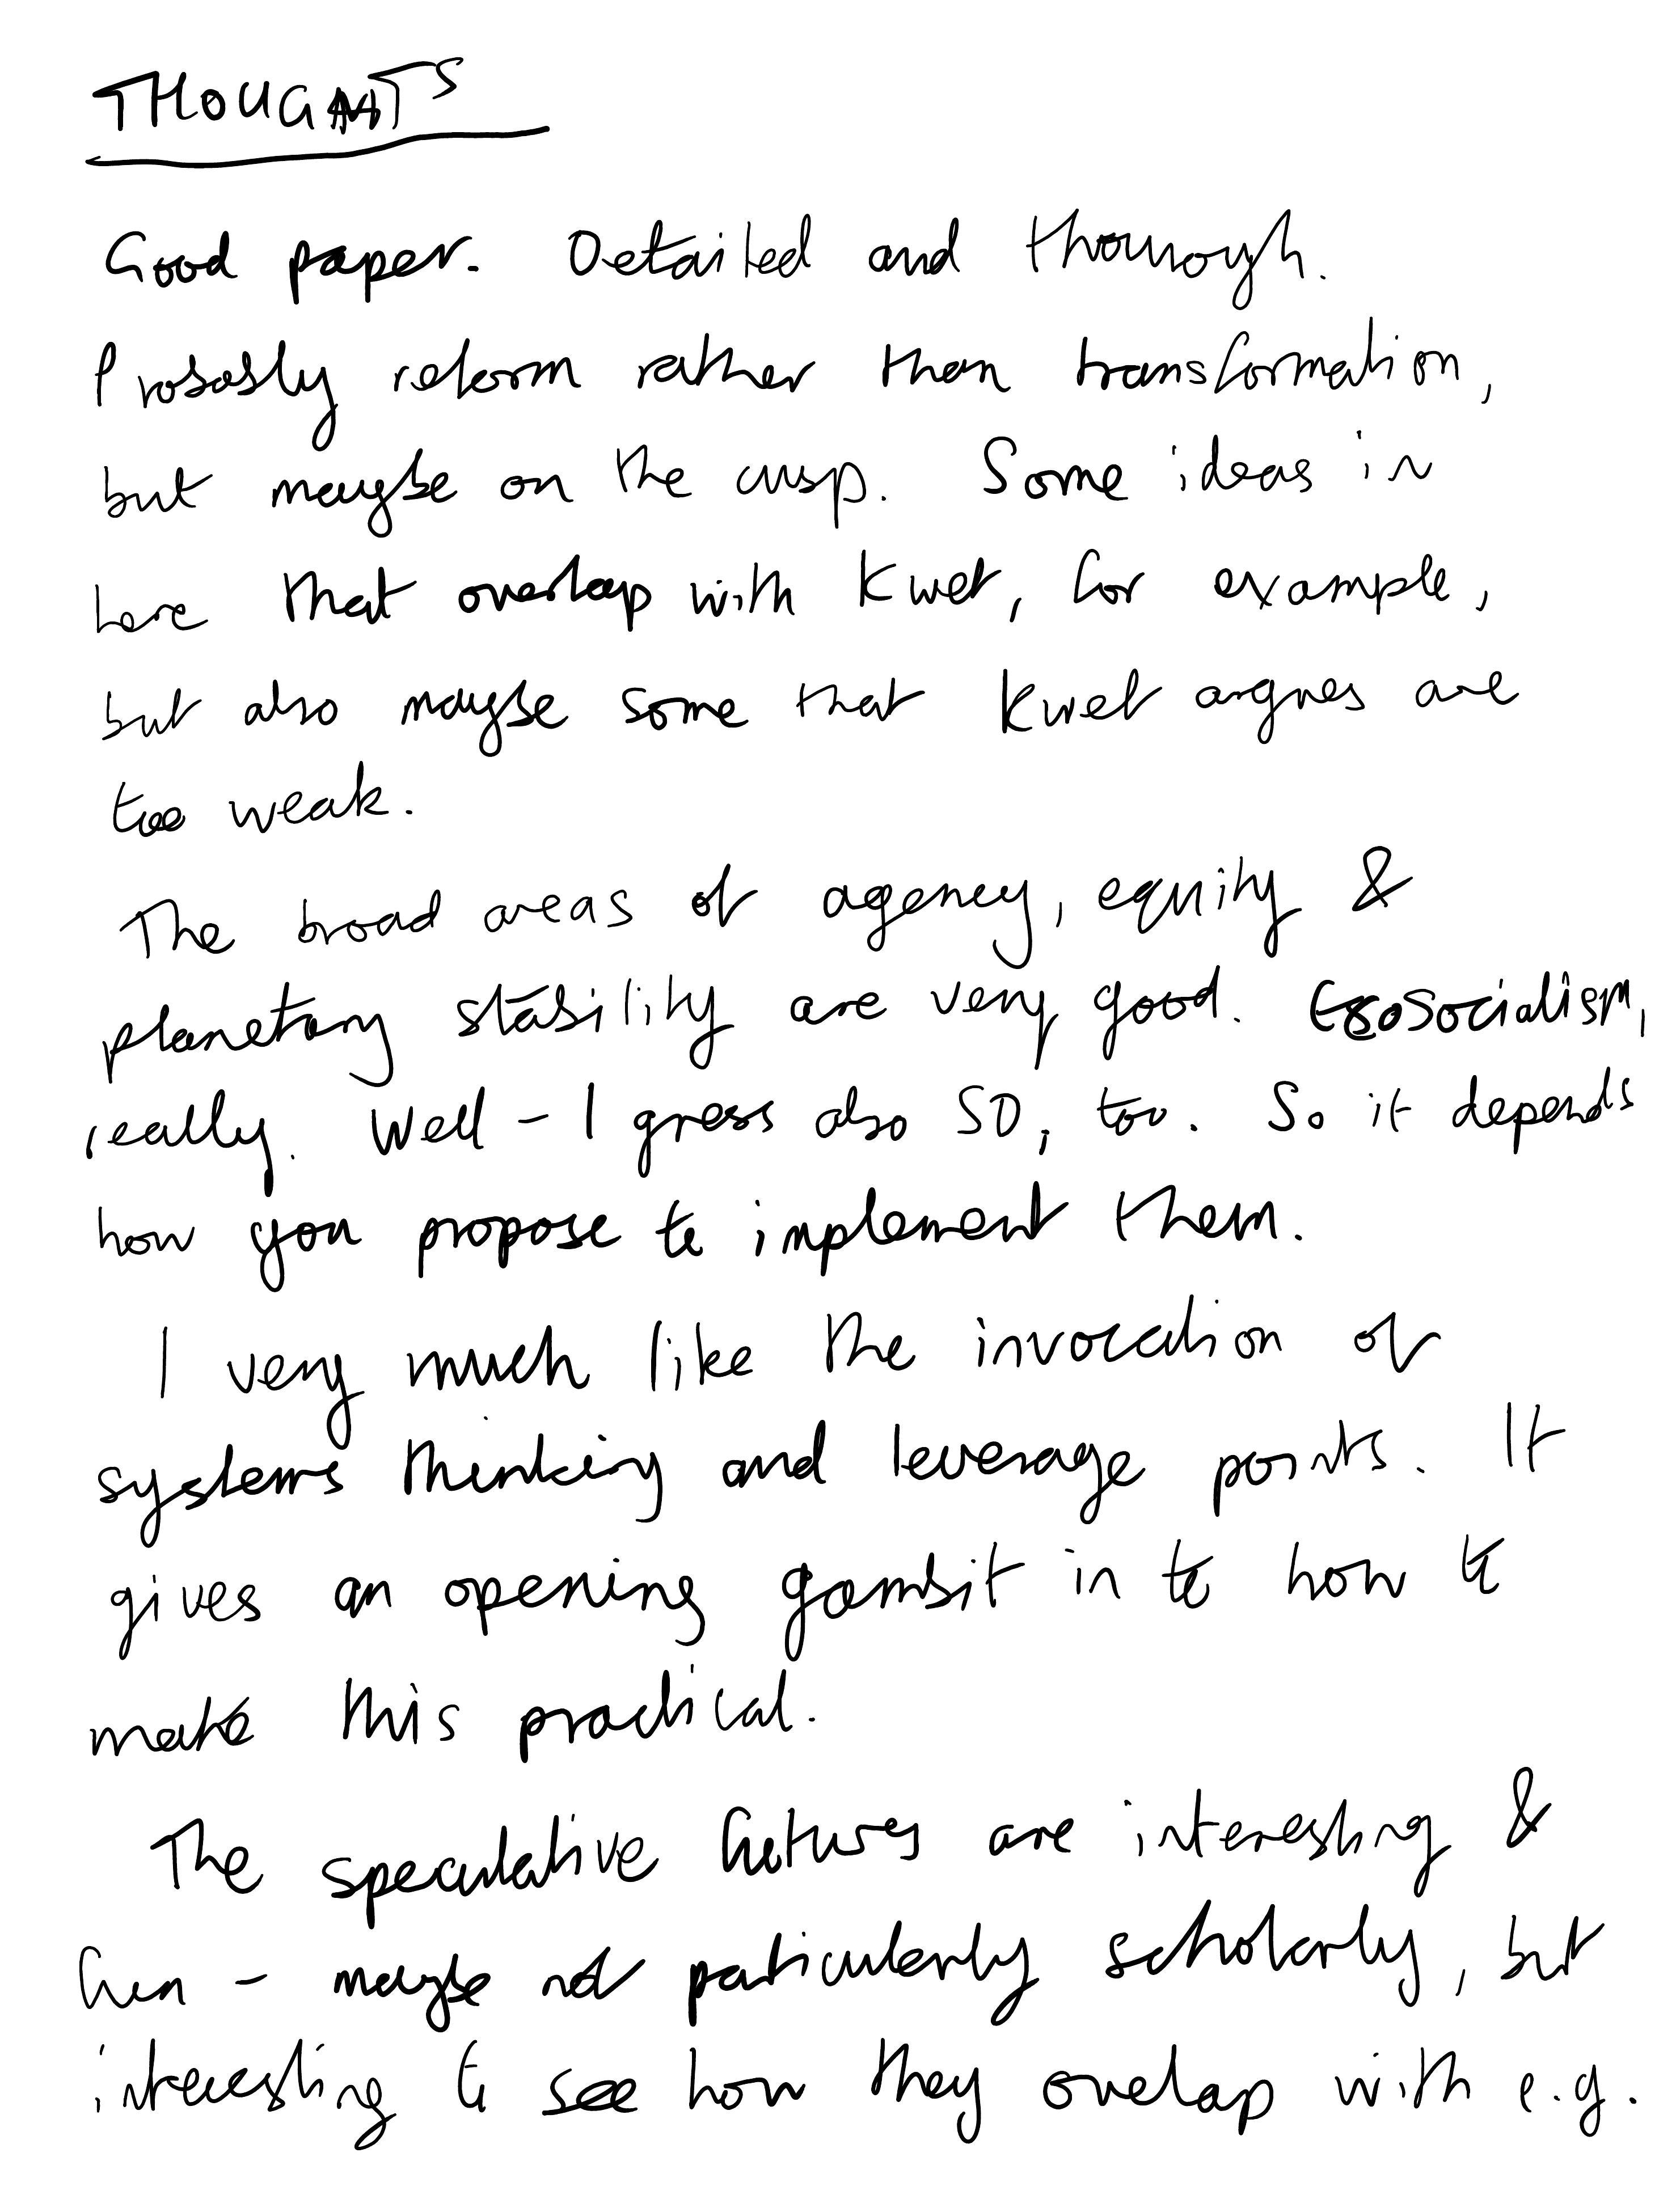 THOUGHTS
Good paper. Detailed and thorough.
Probably reform rather than transformation,
but maybe on the cusp. Some ideas in
here that overlap with Kwet, for example,
but also maybe some that Kwet argues are
too weak.
The broad areas of agency, equity &
planetary stability are very good. Ecosocialism,
really. Well - I guess also SD, too. So it depends
how you propose to implement them.
I very much like the invocation of
systems thinking and leverage points. It
gives an opening gambit in to how to
make this practical.
The speculative futures are interesting &
fun - maybe not particularly scholarly, but
interesting to see how they overlap with e.g.